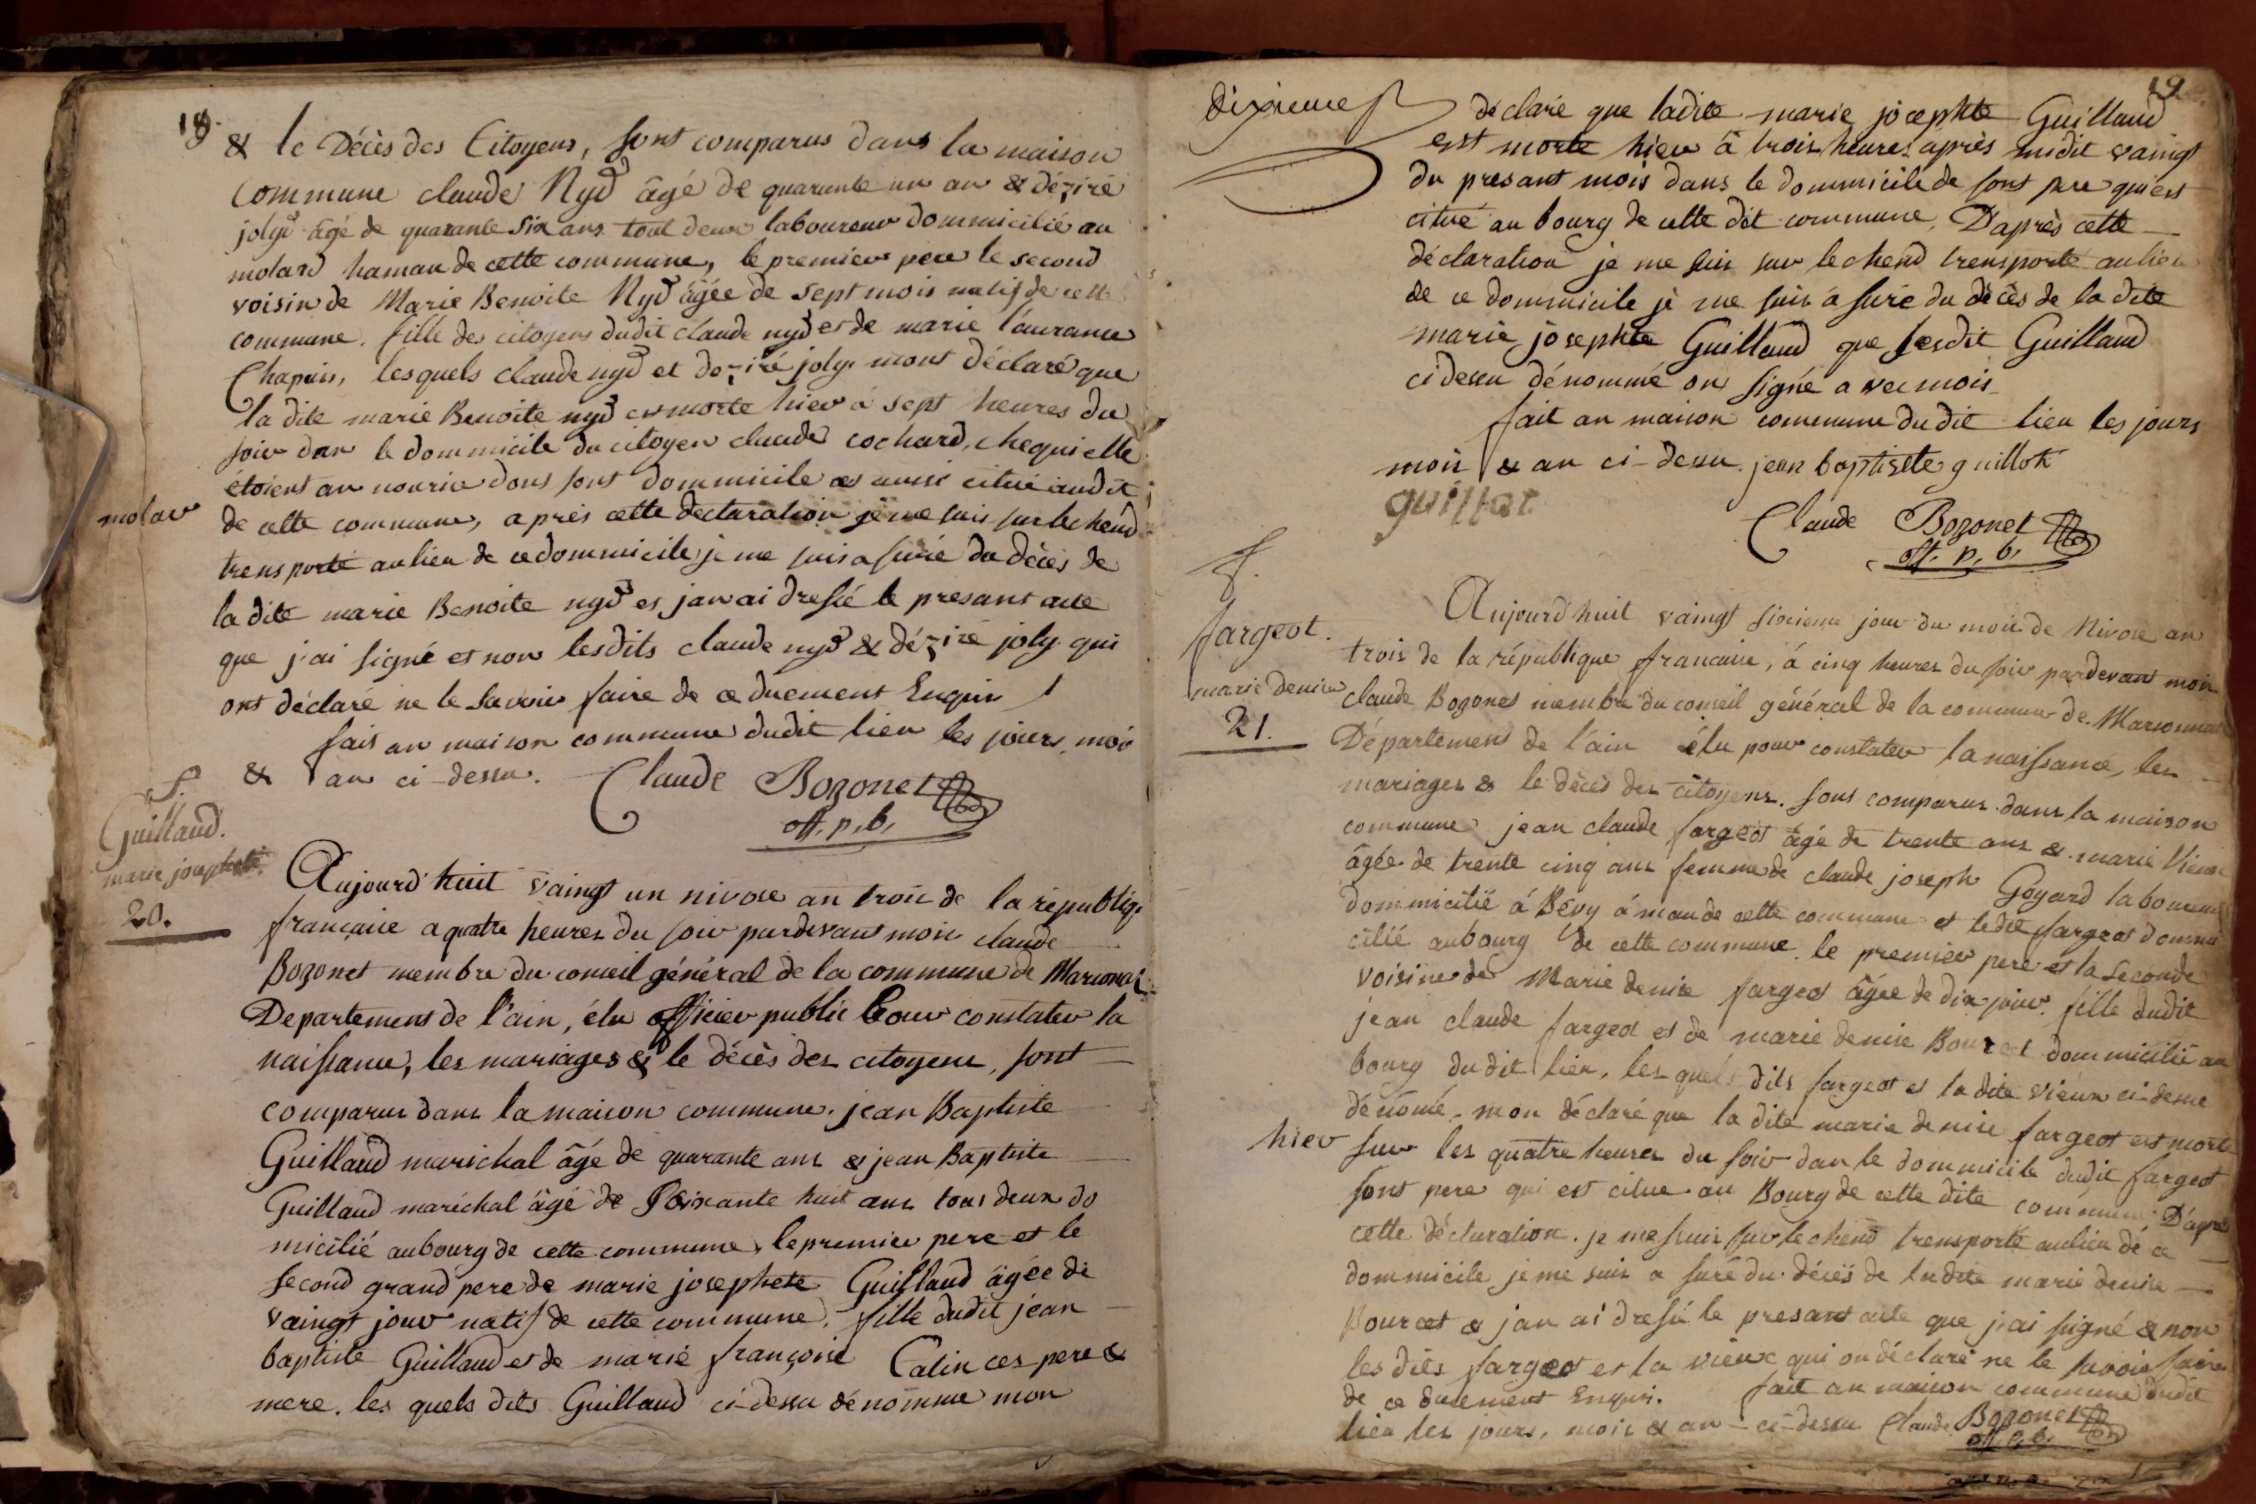 18.
& le Décès des Citoyens, sont comparus dans la maison
commune claude Nyd âgé de quarante un an & déziré
joly âgé de quarante six ans tout deux laboureur dommicilié au
molard haman de cette commune, le premier pere le second
voisin de Marie Benoite Nyd âgée de sept mois natif de cette
commune. fille des citoyens dudit claude nyd et de marie laurance
Chapuis, lesquels claude nyd et déziré joly mont déclaré que
la dite marie Benoite nyd es morte hier a sept heures du
soir dan le dommicile du citoyen claude cochard, chequi elle
étoient an nourice dont sont dommicile es aussi citué audit
molar
de cette commune, après cette declaration je me suis sur le chend
transporté au lieu de ce dommicile je me suis assuré du décès de
la dite marie Benoite nyd et jan ai dressé le presant acte
que j'ai signé et non lesdits claude nyd & déziré joly qui
ont déclaré ne le savoir faire de ce duement Enquis
fais an maison commune dudit lieu les jours, moi
& an ci-dessu. Claude Bozonet
off. p. b.
f.
Guilland.
marie josephete
20.
Aujourd'huit vaingt un nivose an trois de la républiq.
française a quatre heures du soir pardevant moi claude
Bozonet membre du conseil général de la commune de Marsonas
Departement de l'ain, élu officier public Pour constater la
naissance, les mariages & le décès des citoyens, sont
comparus dans la maison commune. jean Baptiste
Guilland marichal âgé de quarante ans & jean Baptiste
Guilland maréchal âgé de Soixante huit ans tous deux do
micilié aubourg de cette commune, le premier pere et le
second grand pere de marie josephete Guilland âgée de
vaingt jour natif de cette commune, fille dudit jean
baptiste Guilland et de marie françoise Catin ces pere &
mere. les quels dits Guilland ci-dessu dénommé mon
19
dixieme
déclaré que ladite marie josephte Guilland
est morte hier â trois heures après midit vaingt
du presant mois dans le dommicile de sont pere qui est
citué au bourg de cette dit commune. D'après cette
déclaration je me suis sur le chend transporté au lieu
de ce dommicile je me suis assuré du décès de la dite
marie josephte Guilland que lesdit Guilland
ci dessu dénommé on signé avec mois
fait an maison commune du dit lieu les jours
mois & an ci-dessu. jean baptiste guillot
guillot
Claude Bozonet
off. p. b.
f.
fargeot.
marie denise
21.
Aujourd'huit vaingt sixieme jour du mois de Nivose an
trois de la république francaise, á cinq heures du soir pardevant moi
claude Bozonet membre du conseil général de la commune de Marsonnas
Département de l'ain élu pour constater la naissance, les
mariages & le décès des citoyens. sont comparus dans la maison
commune jean claude fargeot âgé de trente ans & marie Vieux
âgée de trente cinq ans femme de claude joseph Goyard laboureur
dommicilié á Bévy áman de cette commune et ledit fargeot dommi
cilié aubourg de cette commune. le premier pere et la seconde
voisine de Marie denise fargeot âgée de dix jour fille dudit
jean claude fargeot et de marie denise Bourcet dommicilié au
bourg du dit lieu, les quels dits fargeot et la dite vieux ci-dessu
dénomé. mon déclaré que la dite marie denise fargeot est morte
hier
sur les quatre heures du soir dan le dommicile dudit fargeot
sont pere qui est citue au Bourg de cette dite commune D'après
cette déclaration. je me suis sur le chend transporté au lieu de ce
dommicile je me suis assuré du décès de ladite marie denise
Pourcet & jan ai dressé le presant acte que j'ai signé & non
les dits fargeot et la vieux qui on déclaré ne le savoir faire
de ce duement Enquis. fait an maison commune dudit
lieu les jours, mois & an ci-dessu Claude Bozonet
off. p. b.